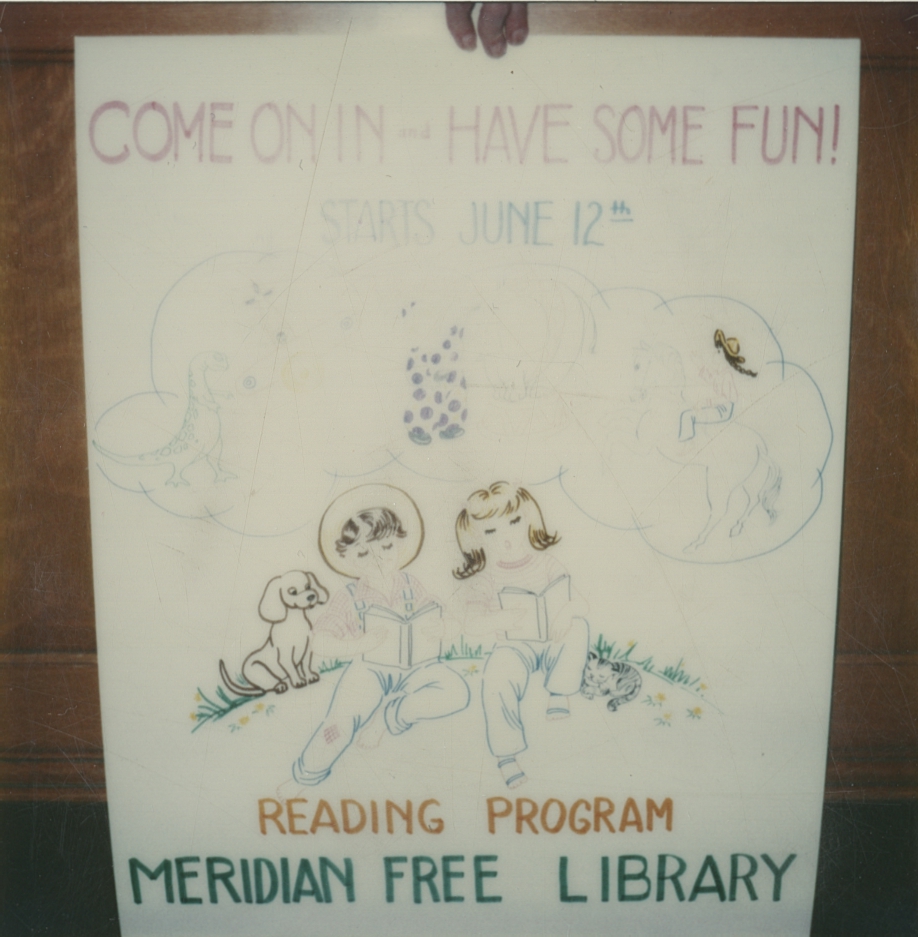 COME ON IN and HAVE SOME FUN!
STARTS JUNE 12th
READING PROGRAM
MERIDIAN FREE LIBRARY